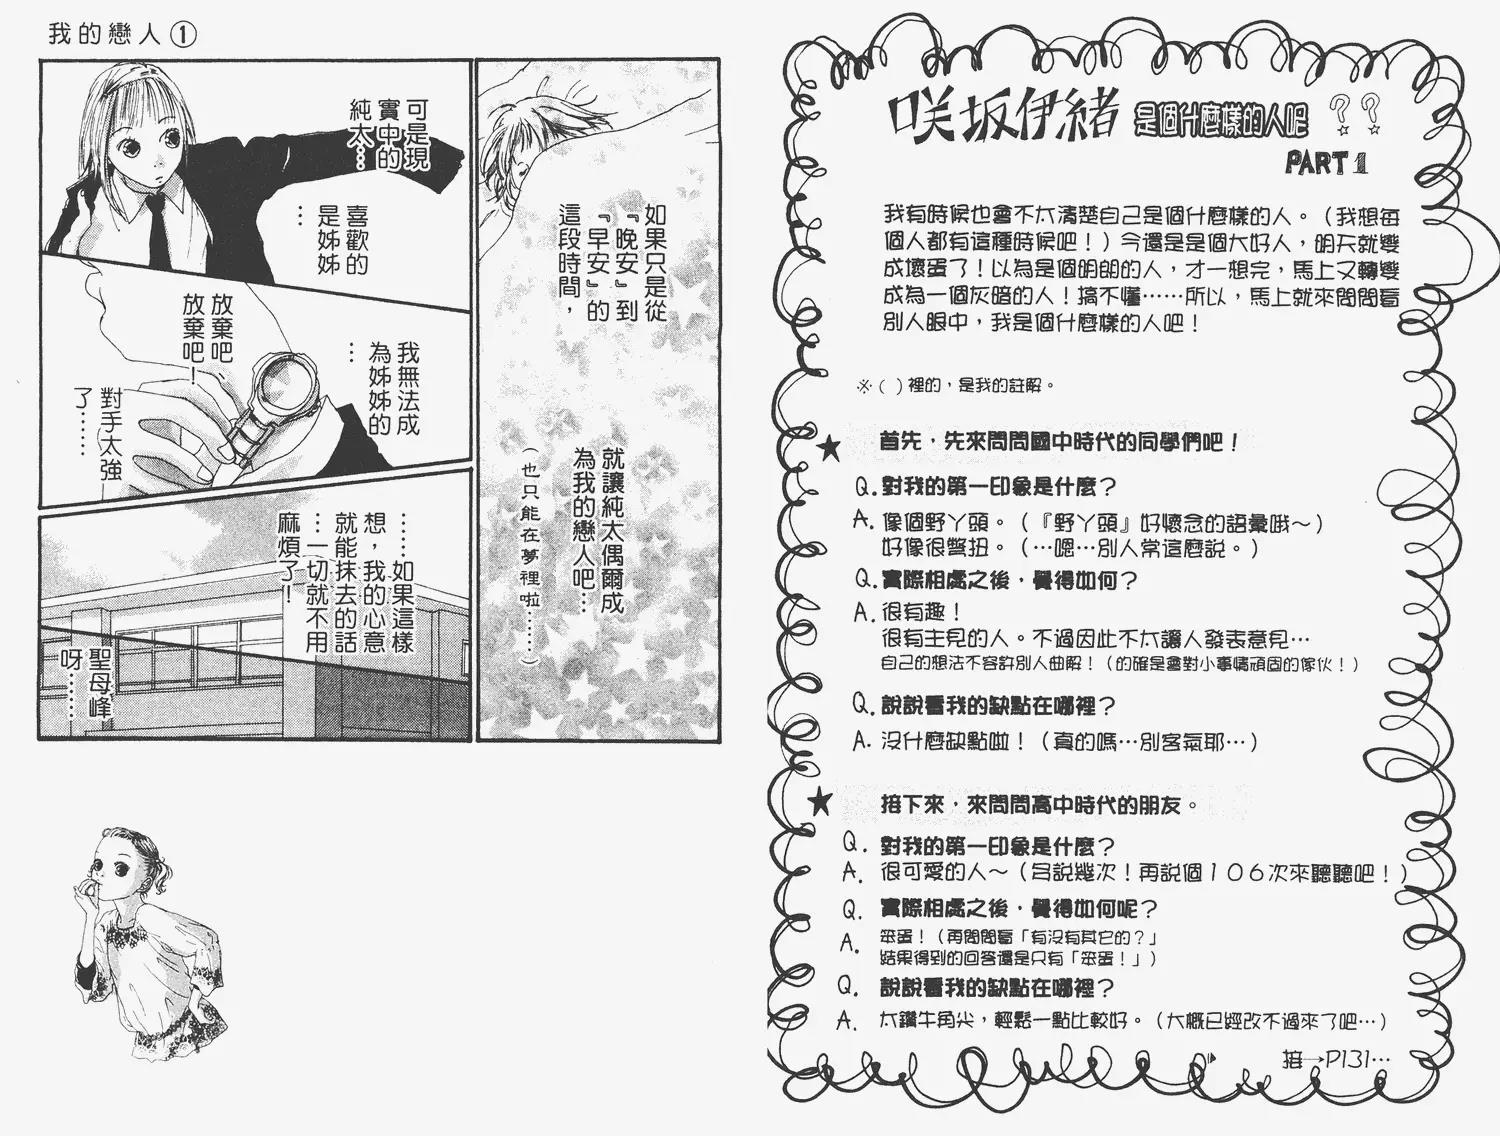 咲坂伊緒 是個什麼樣的人吧??
PART1
我有時候也會不太清楚自己是個什麼樣的人。(我想每
個人都有這種時候吧!)今還是是個大好人，明天就變
成壞蛋了!以為是個明朗的人，才一想完，馬上又轉變
成為一個灰暗的人!搞不懂……所以，馬上就來問問看
別人眼中，我是個什麼樣的人吧!
※( )裡的，是我的註解。
★ 首先，先來問問國中時代的同學們吧!
Q.對我的第一印象是什麼?
A.像個野丫頭。(『野丫頭』好懷念的語彙哦～)
好像很彆扭。(…嗯…別人常這麼說。)
Q.實際相處之後，覺得如何?
A.很有趣!
很有主見的人。不過因此不太讓人發表意見…
自己的想法不容許別人曲解!(的確是會對小事情頑固的傢伙!)
Q.說說看我的缺點在哪裡?
A.沒什麼缺點啦!(真的嗎…別客氣耶…)
★ 接下來，來問問高中時代的朋友。
Q.對我的第一印象是什麼?
A.很可愛的人～(多說幾次!再說個106次來聽聽吧!)
Q.實際相處之後，覺得如何呢?
A.笨蛋!(再問問看「有沒有其它的?」
結果得到的回答還是只有「笨蛋!」)
Q.說說看我的缺點在哪裡?
A.太鑽牛角尖，輕鬆一點比較好。(大概已經改不過來了吧…)
接→P131…
我的戀人①
如果只是從
『晚安』到
『早安』的
這段時間，
就讓純太偶爾成
為我的戀人吧…
(也只能在夢裡啦……)
可是現
實中的
純太…
喜歡的
是姊姊
…
我無法成
為姊姊的
…
放棄吧
放棄吧!
對手太強
了……
……如果這樣
想，我的心意
就能抹去的話
…一切就不用
麻煩了!
聖母峰
呀……